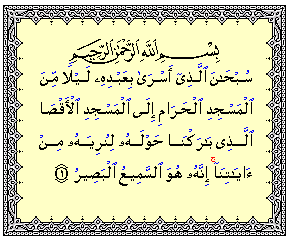 بِسْمِ ٱللَّهِ ٱلرَّحْمَٰنِ ٱلرَّحِيمِ
سُبْحَٰنَ ٱلَّذِىٓ أَسْرَىٰ بِعَبْدِهِۦ لَيْلًا مِّنَ
ٱلْمَسْجِدِ ٱلْحَرَامِ إِلَى ٱلْمَسْجِدِ ٱلْأَقْصَا
ٱلَّذِى بَٰرَكْنَا حَوْلَهُۥ لِنُرِيَهُۥ مِنْ
ءَايَٰتِنَآ ۚ إِنَّهُۥ هُوَ ٱلسَّمِيعُ ٱلْبَصِيرُ ١